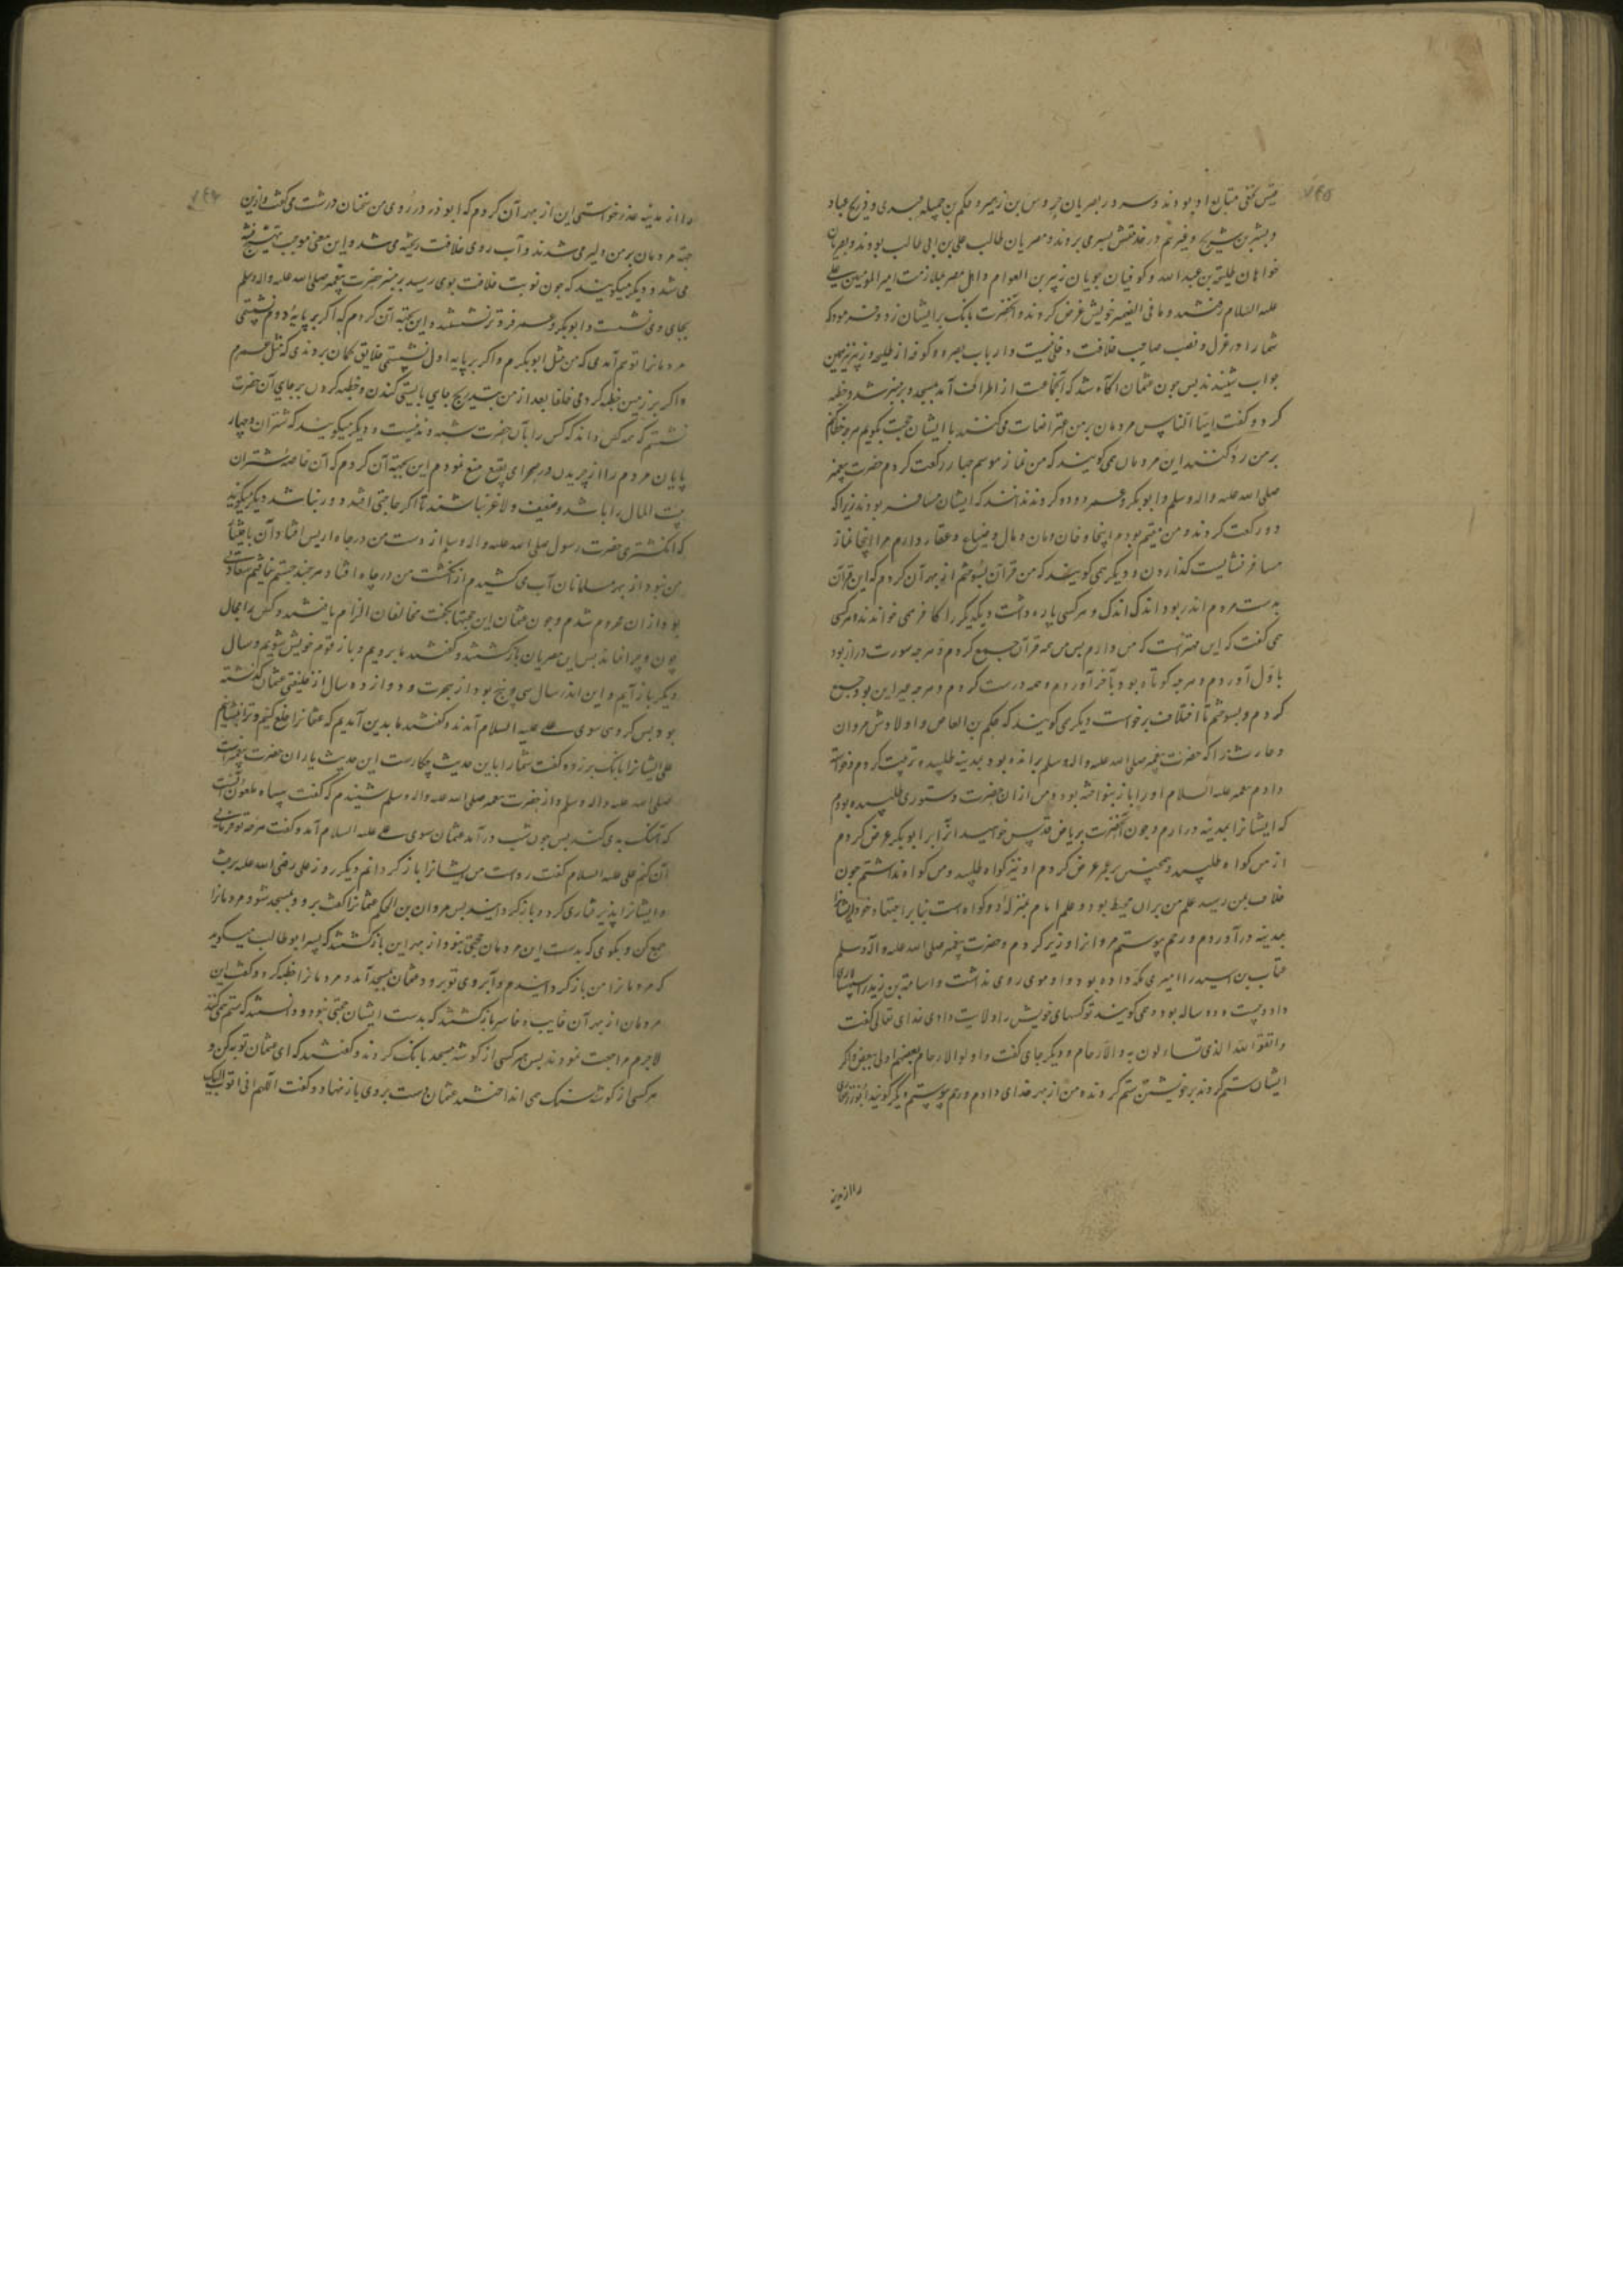 قیس نخعی متابع او بودند و سرور بصریان حروس بن زهیر و حکم بن جبله عبدی و ذریح عباد
و بشر بن شریح و غیرهم در خدمتش بسر می بردند و مصریان طالب علی بن ابی طالب بودند و بصریان
خواهان طلحة بن عبد الله و کوفیان جویان زبیر بن العوام و اهل مصر بملازمت امیر المومنین علی
علیه السلام رفتند و ما فی الضمیر خویش عرض کردند و آنحضرت بانک بر ایشان زد و فرمود که
شما را در عزل و نصب صاحب خلافت دخلی نیست و ارباب بصره و کوفه از طلحه و زبیر نیز همین
جواب شنیدند پس چون عثمان آکاه شد که آنجماعت از اطراف آمد بمسجد و بر منبر شد و خطبه
کرد و کفت ایها الناس مردمان بر من اعتراضات می کنند با ایشان حجت بکویم هر چه خطا کنم
بر من رد کنند این مردمان می کویند که من نماز موسم چهار رکعت کردم حضرت پیغمبر
صلی الله علیه واله وسلم و ابو بکر و عمر دو دو کردند ندانند که ایشان مسافر بودند زیرا که
دو رکعت کردند و من مقیم بودم اینجا و خان و مان و مال و ضیاع و عقار دارم مرا اینجا نماز
مسافر نشایست کذاردن و دیکر همی کویند که من قرآن بسوختم از بهر آن کردم که این قرآن
بدست مردم اندر بود اندک اندک و هر کسی پاره داشت و یکدیکر را کافر همی خواندند و هر کسی
همی کفت که این بهتر است که من دارم پس من همه قرآن جمع کردم و هر چه سورت دراز بود
باول آوردم و هر چه کوتاه بود بآخر آوردم و همه درست کردم و هر چه جز این بود جمع
کردم و بسوختم تا اختلاف برخواست دیکر می کویند که حکم بن العاص و اولادش مروان
و حارث را که حضرت پیغمبر صلی الله علیه واله وسلم برانده بود بمدینه طلبیده تربیت کردم و خواسته
دادم پیغمبر علیه السلام او را باز بنواخته بود و من از آن حضرت دستوری طلبیده بودم
که ایشانرا بمدینه در ارم و چون آنحضرت بریاض قدس خرامید آنرا بر ابو بکر عرض کردم
از من کواه طلبید و همچنین بر عمر عرض کردم او نیز کواه طلبید و من کواه نداشتم چون
خلافت بمن رسید علم من بران محیط بود و علم امام بمنزله دو کواه است بنا بر اجتهاد خود ایشانرا
بمدینه در آوردم و رحم پیوستم مروانرا وزیر کردم و حضرت پیغمبر صلی الله علیه واله وسلم
عتاب بن اسید را امیری مکه داده بود و او موی روی نداشت و اسامة بن زید را سپهسالاری
داد و بیست و دو ساله بود و می کویند تو کسهای خویش را ولایت دادی خدای تعالی کفت
واتقوا الله الذی تساءلون به والارحام و دیکر جای کفت و اولوا الارحام بعضهم اولی ببعض و اکر
ایشان ستم کردند بر خویشتن ستم کردند و من از بهر خدای دادم و رحم پیوستم دیکر کویند ابوذر غفاری
را از مدینه
را از مدینه عذر خواستی این از بهر آن کردم که ابو ذر در روی من سخنان درشت می کفت و ازین
جهة مردمان بر من دلیر می شدند و آب روی خلافت ریخته می شد و این معنی موجب تهییج فتنه
می شد و دیکر میکویند که چون نوبت خلافت بوی رسید بر منبر حضرت پیغمبر صلی الله علیه واله وسلم
بجای وی نشست و ابو بکر و عمر فروتر نشستند و این بجهته آن کردم که اکر بر پایه دوم نشستمی
مردمانرا توهم آمدی که من مثل ابو بکرم و اکر بر پایه اول نشستمی خلایق کمان بردندی که مثل عمرم
و اکر بر زمین خطبه کردمی خلفا بعد از من بتدریج جاهی بایستی کندن و خطبه کردن بر جای آن حضرت
نشستم که همه کس داند که کس را بآن حضرت شبه و ند نیست و دیکر میکویند که شتران و چهار
پایان مردم را از چریدن در صحرای بقیع منع نمودم این بجهته آن کردم که آن خاصه شتران
بیت المال را باشد و ضعیف و لاغر نباشند تا اکر حاجتی افتد دور نباشد دیکر میکویند
که انکشتری حضرت رسول صلی الله علیه واله وسلم از دست من در چاه اریس افتاد آن باختیار
من نبود از بهر مسلمانان آب می کشیدم از انکشت من در چاه افتاد هر چند جستم نیافتم سعادتی
بود از ان محروم شدم و چون عثمان این حجتها بکفت مخالفان الزام یافتند و کس را مجال
چون و چرا نماند پس این مصریان بازکشتند و کفتند ما برویم و باز قوم خویش شویم و سال
دیکر باز آیم و این اندر سال سی و پنج بود از هجرت و دوازده سال از خلیفتی عثمان کذشته
بود پس کروهی سوی علی علیه السلام آمدند و کفتند ما بدین آمدیم که عثمانرا خلع کنیم و ترا بنشانیم
علی ایشانرا بانک بر زد و کفت شما را با این حدیث چکارست این حدیث یاران حضرت پیغمبر است
صلی الله علیه واله وسلم و از حضرت پیغمبر صلی الله علیه واله وسلم شنیدم که کفت سپاه ملعون است
که آهنک بدی کنند پس چون شب در آمد عثمان سوی علی علیه السلام آمد و کفت هر چه تو فرمائی
آن کنم علی علیه السلام کفت رواست من ایشانرا باز کردانم دیکر روز علی رضی الله علیه برفت
و ایشانرا پذیرفتاری کرد و باز کردانید پس مروان بن الحکم عثمانرا کفت برو و بمسجد شو و مردمانرا
جمع کن و بکوی که بدست این مردمان حجتی نبود از بهر این بازکشتند که پسر ابو طالب میکوید
که مردمانرا من باز کردانیدم و آبروی تو برود عثمان بمسجد آمد و مردمانرا خطبه کرد و کفت این
مردمان از بهر آن خایب و خاسر بازکشتند که بدست ایشان حجتی نبود و دانستند که ستم همی کنند
لاجرم مراجعت نمودند پس هر کسی از کوشه مسجد بانک کردند و کفتند که ای عثمان توبه کن و
هر کسی از کوشه سنک می انداختند عثمان دست بروی باز نهاد و کفت اللهم انی اتوب الیک